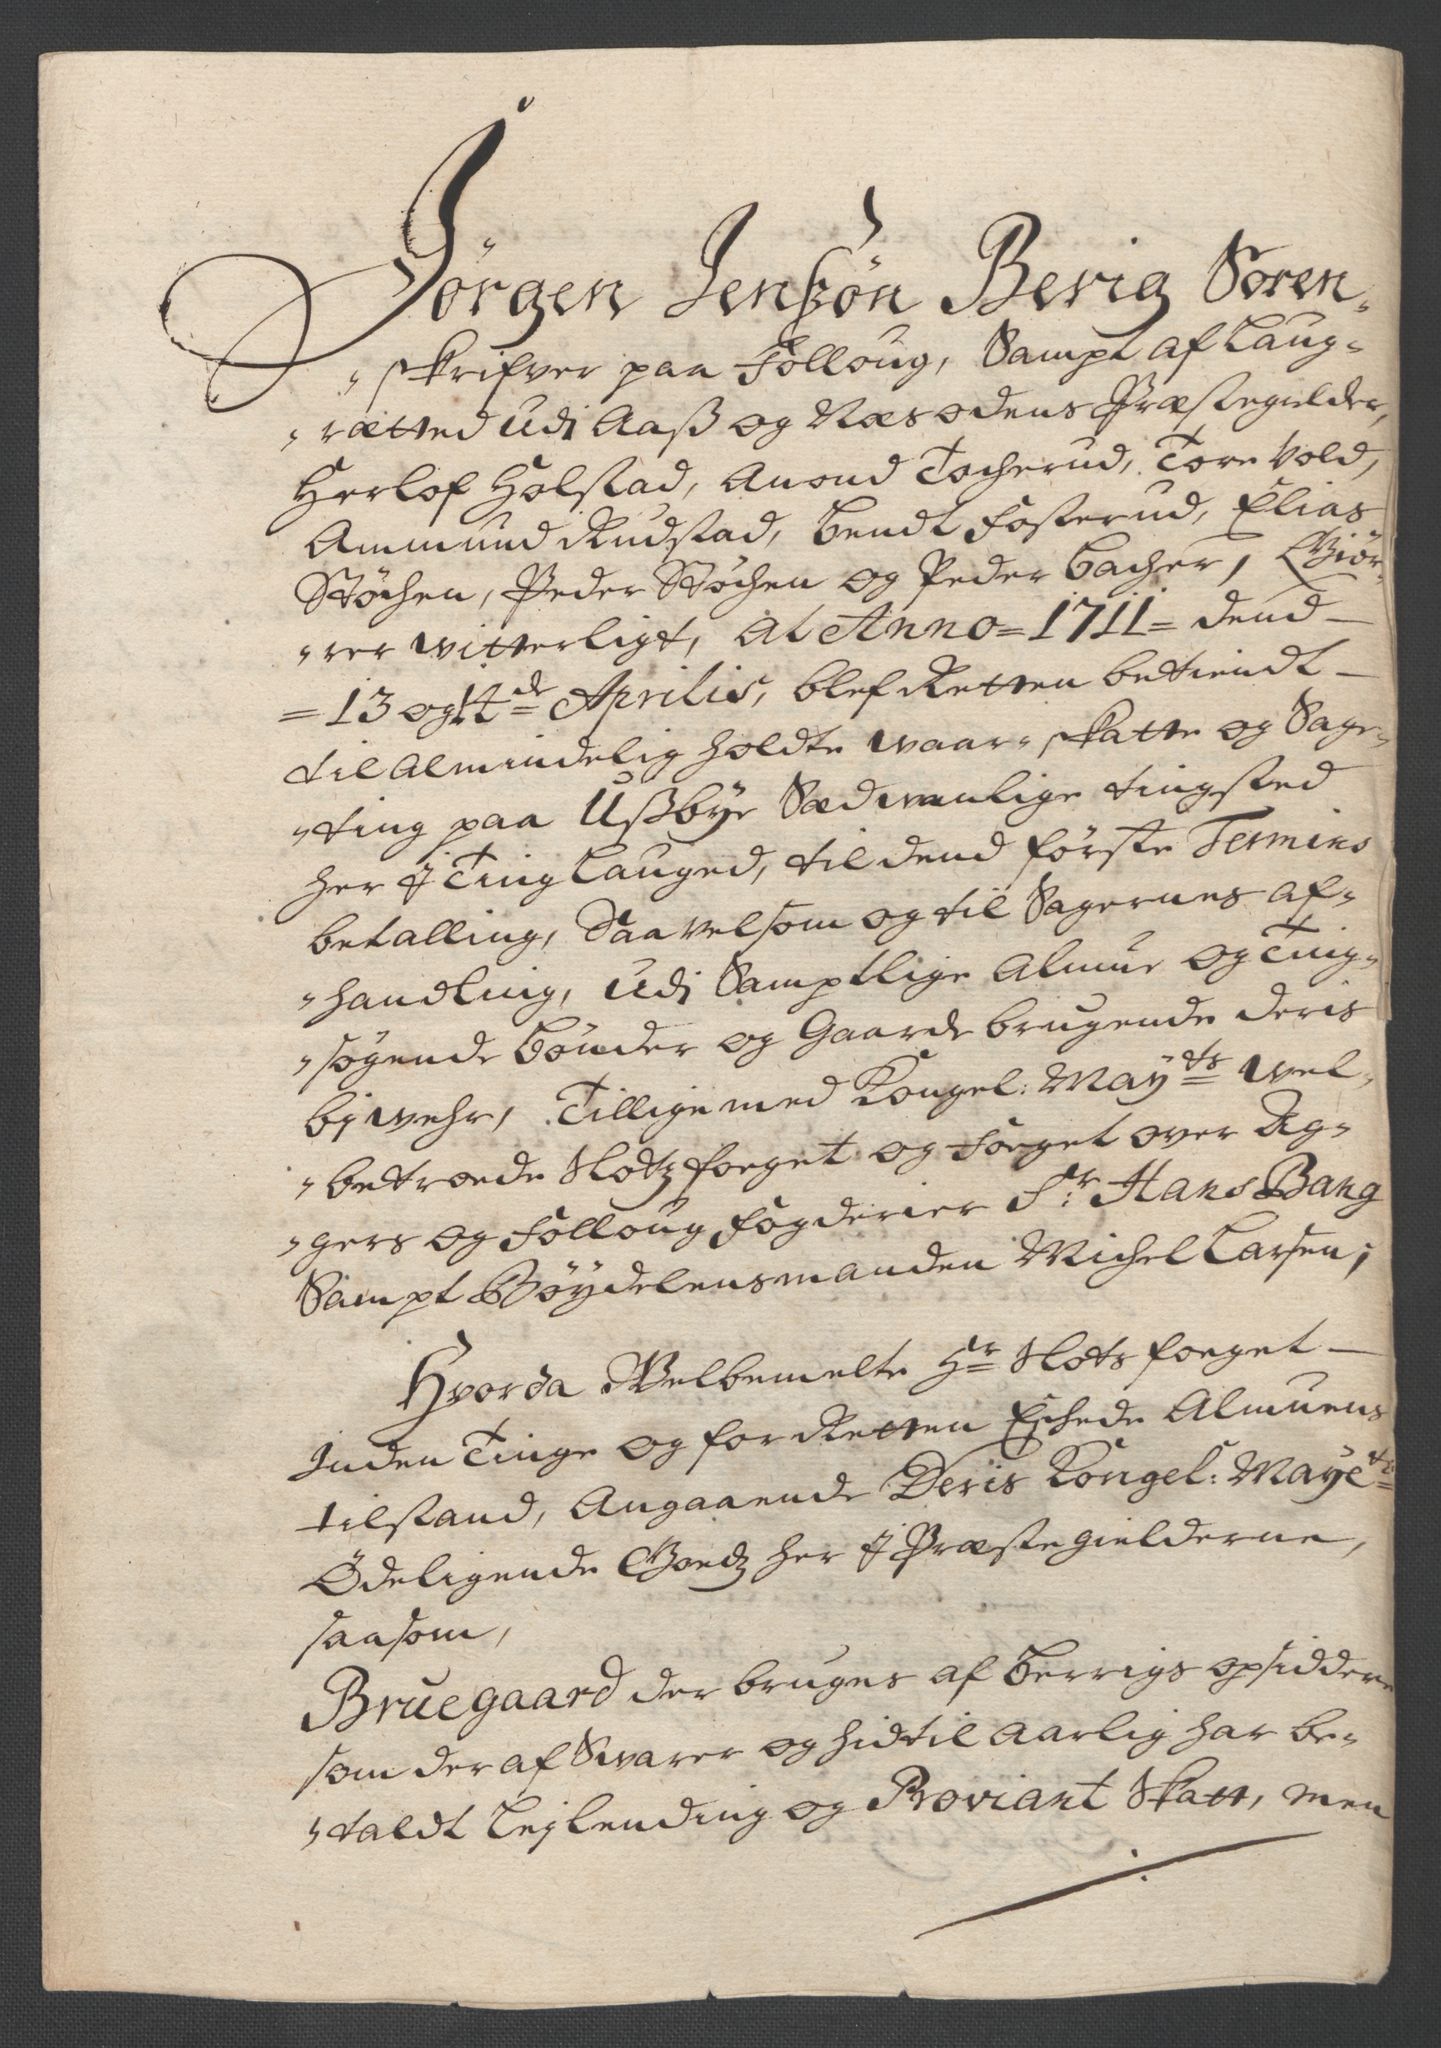 Jörgen Jenssön Berig Soren-
skrifver paa Folloug, Sampt af Laug-
rætted udi Aass og Næsodens Præstegielder,
Herlof Holstad, Anond Tocherud, Tore Vold,
Ammund Rudstad, Bendt Fosterud, Elias
Støchen, Peder Støchen og Peder Bacher, Giör-
rer witterligt, At Anno = 1711 = dend
= 13 og 14de Aprilis, blef Retten betiendt
til Almindelig holdte waar-skatte og Sage-
ting paa Ussbye Sædwanlige tingsted
her J Ting Lauged, til dend første Termins
betalling, Saavelsom og til Sagernes af-
handling, udi Samptlige Almue og Ting-
søgende Bønder og Gaarde brugende deris
bjwehr, Tillige med Kongel: Mayts wel-
betroede Slotzfoeget og Foeget over Ag-
gers og Folloug fogderier Sr: Hans Bang
Sampt Bøydelensmanden Michel Larsen;
Hvorda Welbemelte Hr Slotsfoeget
Inden Tinge og for Retten Eschede Almuens
tilstand, Angaaende Deris Kongel: Mayets
Ødeligende Goedz her J Præstegielderne,
saasom,
Bruegaard der bruges af Berrigs opsiddere
som der af Swarer og hidtil Aarlig har be-
taldt Lejlending og Proviant Skatt, men